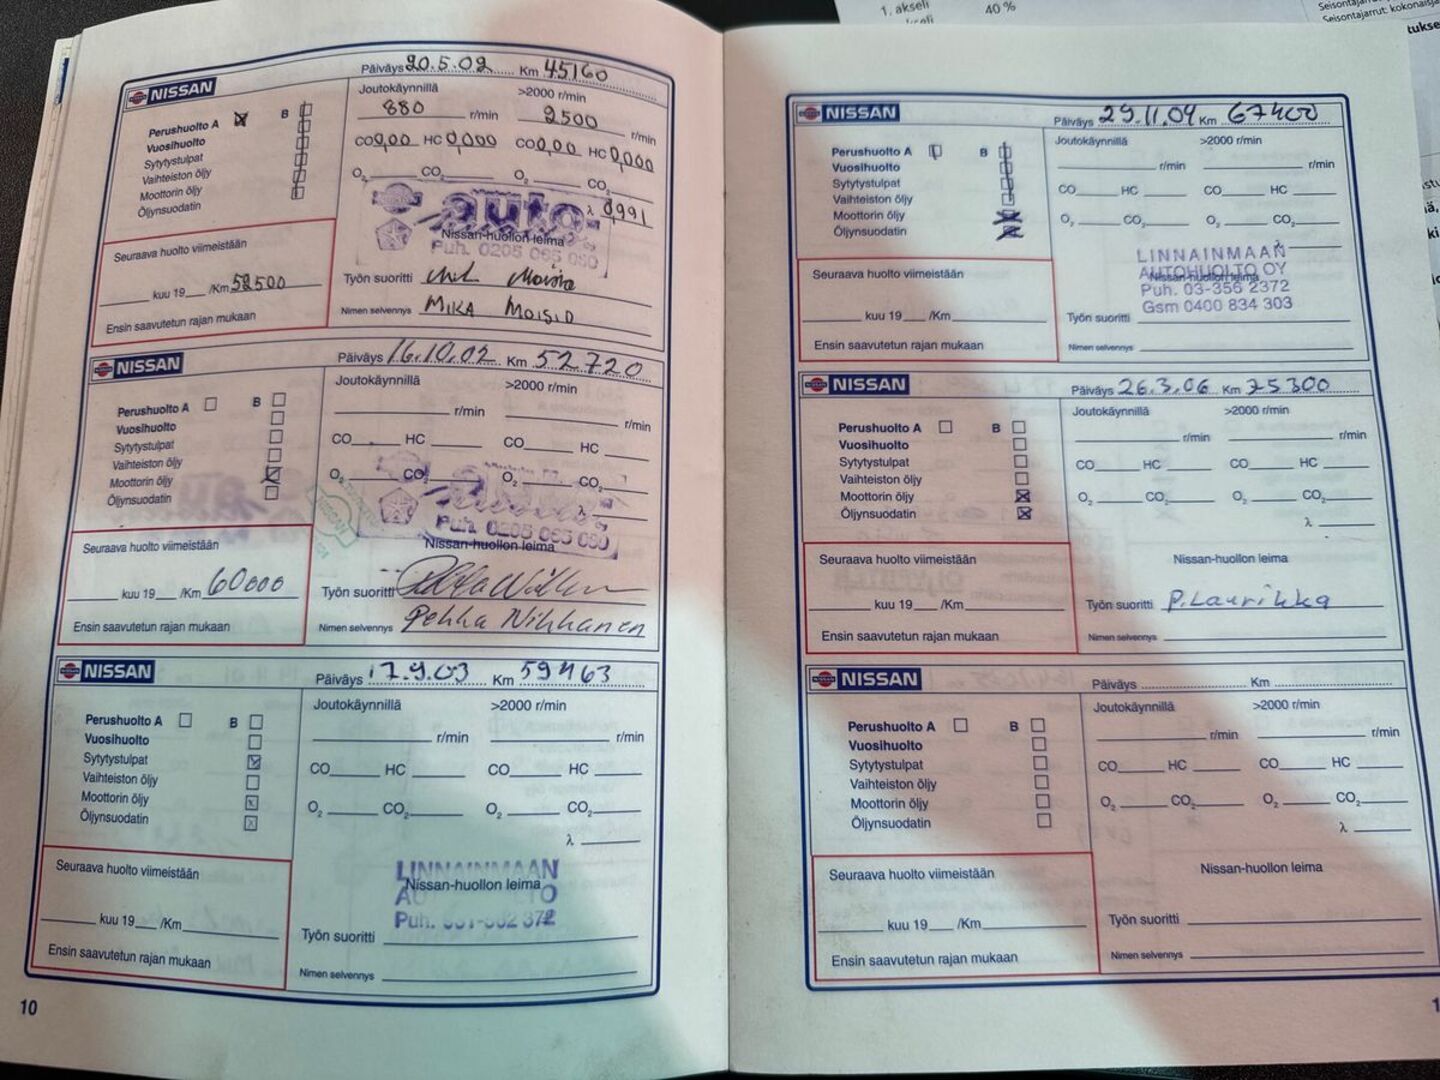 1. akseli 40 %
Seisontajarrut: kokonaisja
NISSAN
Päiväys 20.5.02 Km 45160
Perushuolto A B
Vuosihuolto
Sytytystulpat
Vaihteiston öljy
Moottorin öljy
Öljynsuodatin
Joutokäynnillä >2000 r/min
880 r/min 2500 r/min
CO 0,00 HC 0,000 CO 0,00 HC 0,000
O2 CO2 O2 CO2
λ 0,991
auto-
Nissan-huollon leima
Puh. 0205 065 060
Seuraava huolto viimeistään
kuu 19 /Km 52500
Ensin saavutetun rajan mukaan
Työn suoritti
Nimen selvennys MIKA MOISIO
NISSAN
Päiväys 16.10.02 Km 52720
Perushuolto A B
Vuosihuolto
Sytytystulpat
Vaihteiston öljy
Moottorin öljy
Öljynsuodatin
Joutokäynnillä >2000 r/min
r/min r/min
CO HC CO HC
O2 CO2 O2 CO2
λ
Puh. 0205 065 060
Nissan-huollon leima
Seuraava huolto viimeistään
kuu 19 /Km 60000
Ensin saavutetun rajan mukaan
Työn suoritti
Nimen selvennys Pekka Nikkanen
NISSAN
Päiväys 17.9.03 Km 59463
Perushuolto A B
Vuosihuolto
Sytytystulpat
Vaihteiston öljy
Moottorin öljy
Öljynsuodatin
Joutokäynnillä >2000 r/min
r/min r/min
CO HC CO HC
O2 CO2 O2 CO2
λ
LINNAINMAAN
Nissan-huollon leima
Puh.
Seuraava huolto viimeistään
kuu 19 /Km
Ensin saavutetun rajan mukaan
Työn suoritti
Nimen selvennys
10
NISSAN
Päiväys 29.11.04 Km 67400
Perushuolto A B
Vuosihuolto
Sytytystulpat
Vaihteiston öljy
Moottorin öljy
Öljynsuodatin
Joutokäynnillä >2000 r/min
r/min r/min
CO HC CO HC
O2 CO2 O2 CO2
λ
LINNAINMAAN
AUTOHUOLTO OY
Nissan-huollon leima
Puh. 03-356 2372
Gsm 0400 834 303
Seuraava huolto viimeistään
kuu 19 /Km
Ensin saavutetun rajan mukaan
Työn suoritti
Nimen selvennys
NISSAN
Päiväys 26.3.06 Km 75300
Perushuolto A B
Vuosihuolto
Sytytystulpat
Vaihteiston öljy
Moottorin öljy
Öljynsuodatin
Joutokäynnillä >2000 r/min
r/min r/min
CO HC CO HC
O2 CO2 O2 CO2
λ
Nissan-huollon leima
Seuraava huolto viimeistään
kuu 19 /Km
Ensin saavutetun rajan mukaan
Työn suoritti P. Laurikka
Nimen selvennys
NISSAN
Päiväys Km
Perushuolto A B
Vuosihuolto
Sytytystulpat
Vaihteiston öljy
Moottorin öljy
Öljynsuodatin
Joutokäynnillä >2000 r/min
r/min r/min
CO HC CO HC
O2 CO2 O2 CO2
λ
Nissan-huollon leima
Seuraava huolto viimeistään
kuu 19 /Km
Ensin saavutetun rajan mukaan
Työn suoritti
Nimen selvennys